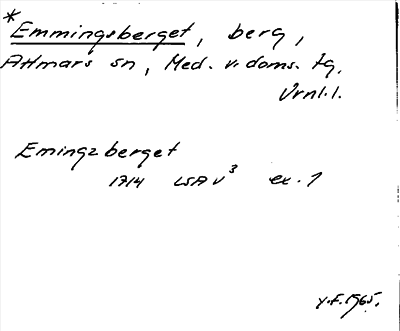 *Emmingsberget, berg,
Attmars sn, Med. v. doms. tg.
Vrnl.l.
Emingzberget
1714 LSA V³ ex. 1
Y.F. 1965.